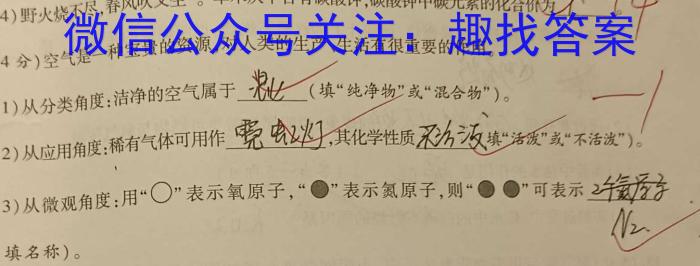 4)野火烧不尽,春风吹又生。草木灰中含有碳酸钾,碳酸钾中碳元素的化合价为
微信公众号关注：趣找答案
4分)空气是一种宝贵的资源,对人类的生产、生活有很重要的作用。
1)从分类角度:洁净的空气属于 混 (填“纯净物”或“混合物”)。
2)从应用角度:稀有气体可用作 霓虹灯 ,其化学性质 不活泼 填“活泼”或“不活泼”)。
3)从微观角度:用“○”表示氧原子,“●”表示氮原子,则“●●”可表示 2个氮原子
N₂
填名称)。
-1